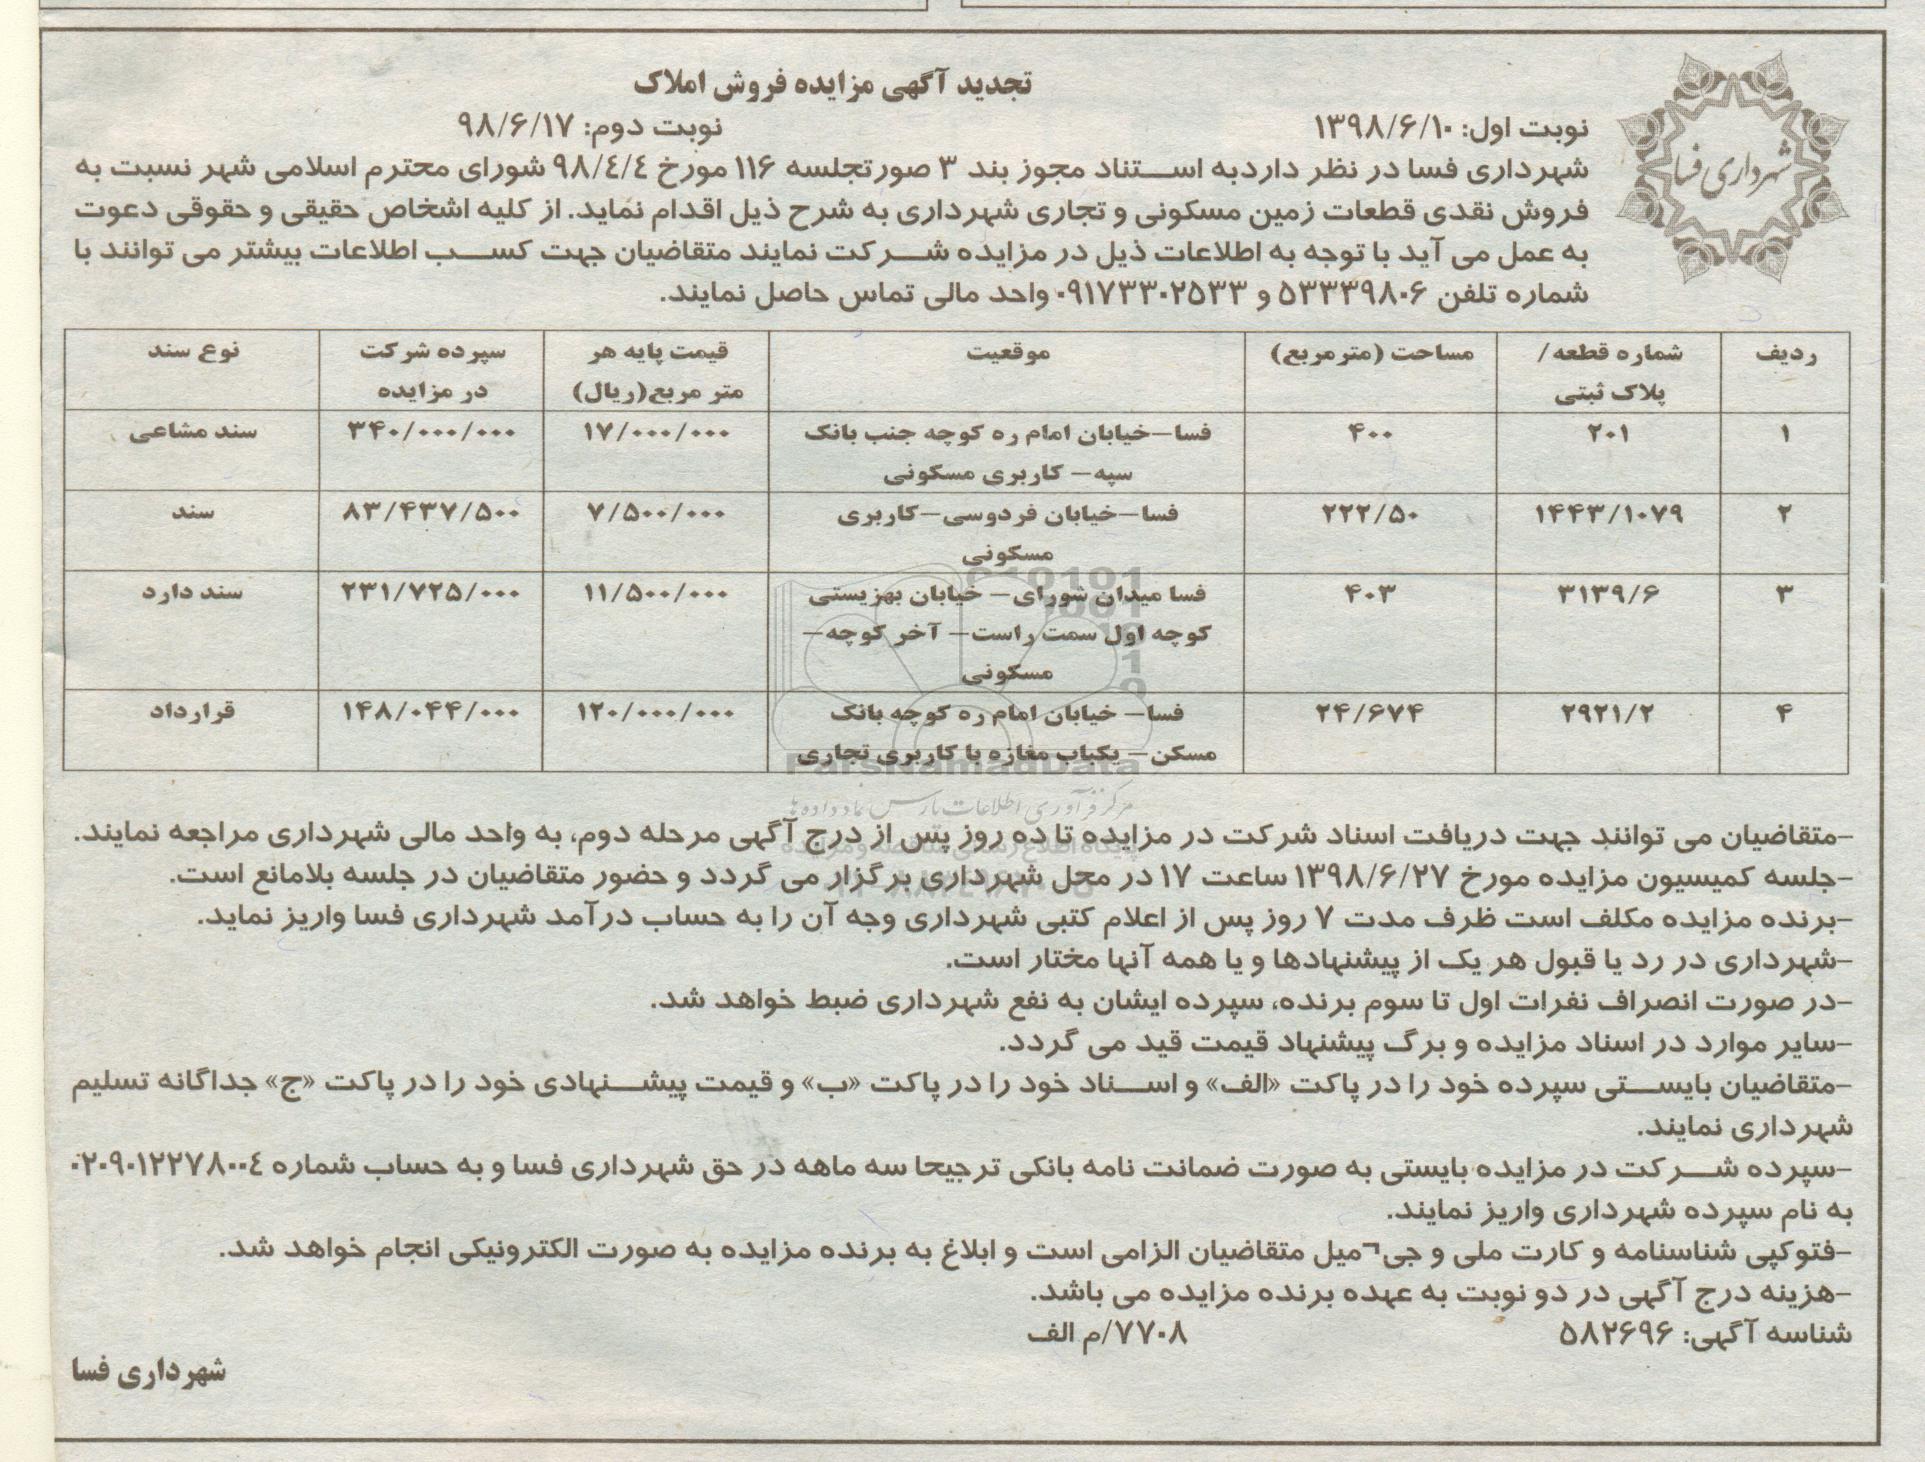 تجدید آگهی مزایده فروش املاک
شهرداری فسا
نوبت اول: ۱۳۹۸/۶/۱۰ نوبت دوم: ۹۸/۶/۱۷
شهرداری فسا در نظر داردبه استناد مجوز بند ۳ صورتجلسه ۱۱۶ مورخ ۹۸/٤/٤ شورای محترم اسلامی شهر نسبت به
فروش نقدی قطعات زمین مسکونی و تجاری شهرداری به شرح ذیل اقدام نماید. از کلیه اشخاص حقیقی و حقوقی دعوت
به عمل می آید با توجه به اطلاعات ذیل در مزایده شرکت نمایند متقاضیان جهت کسب اطلاعات بیشتر می توانند با
شماره تلفن ۵۳۳۳۹۸۰۶ و ۰۹۱۷۳۳۰۲۵۳۳ واحد مالی تماس حاصل نمایند.
ردیف | شماره قطعه/ پلاک ثبتی | مساحت (مترمربع) | موقعیت | قیمت پایه هر متر مربع(ریال) | سپرده شرکت در مزایده | نوع سند
۱ | ۲۰۱ | ۴۰۰ | فسا–خیابان امام ره کوچه جنب بانک سپه– کاربری مسکونی | ۱۷/۰۰۰/۰۰۰ | ۳۴۰/۰۰۰/۰۰۰ | سند مشاعی
۲ | ۱۴۴۳/۱۰۷۹ | ۲۲۲/۵۰ | فسا–خیابان فردوسی–کاربری مسکونی | ۷/۵۰۰/۰۰۰ | ۸۳/۴۳۷/۵۰۰ | سند
۳ | ۳۱۳۹/۶ | ۴۰۳ | فسا میدان شورای– خیابان بهزیستی کوچه اول سمت راست– آخر کوچه– مسکونی | ۱۱/۵۰۰/۰۰۰ | ۲۳۱/۷۲۵/۰۰۰ | سند دارد
۴ | ۲۹۲۱/۲ | ۲۴/۶۷۴ | فسا– خیابان امام ره کوچه بانک مسکن– یکباب مغازه با کاربری تجاری | ۱۲۰/۰۰۰/۰۰۰ | ۱۴۸/۰۴۴/۰۰۰ | قرارداد
ParsNamadData
مرکز فرآوری اطلاعات پارس نماد داده ها
–متقاضیان می توانند جهت دریافت اسناد شرکت در مزایده تا ده روز پس از درج آگهی مرحله دوم، به واحد مالی شهرداری مراجعه نمایند.
–جلسه کمیسیون مزایده مورخ ۱۳۹۸/۶/۲۷ ساعت ۱۷ در محل شهرداری برگزار می گردد و حضور متقاضیان در جلسه بلامانع است.
–برنده مزایده مکلف است ظرف مدت ۷ روز پس از اعلام کتبی شهرداری وجه آن را به حساب درآمد شهرداری فسا واریز نماید.
–شهرداری در رد یا قبول هر یک از پیشنهادها و یا همه آنها مختار است.
–در صورت انصراف نفرات اول تا سوم برنده، سپرده ایشان به نفع شهرداری ضبط خواهد شد.
–سایر موارد در اسناد مزایده و برگ پیشنهاد قیمت قید می گردد.
–متقاضیان بایستی سپرده خود را در پاکت «الف» و اسناد خود را در پاکت «ب» و قیمت پیشنهادی خود را در پاکت «ج» جداگانه تسلیم
شهرداری نمایند.
–سپرده شرکت در مزایده بایستی به صورت ضمانت نامه بانکی ترجیحا سه ماهه در حق شهرداری فسا و به حساب شماره ۰۲۰۹۰۱۲۲۷۸۰۰٤
به نام سپرده شهرداری واریز نمایند.
–فتوکپی شناسنامه و کارت ملی و جی¬میل متقاضیان الزامی است و ابلاغ به برنده مزایده به صورت الکترونیکی انجام خواهد شد.
–هزینه درج آگهی در دو نوبت به عهده برنده مزایده می باشد.
شناسه آگهی: ۵۸۲۶۹۶ ۷۷۰۸/م الف
شهرداری فسا